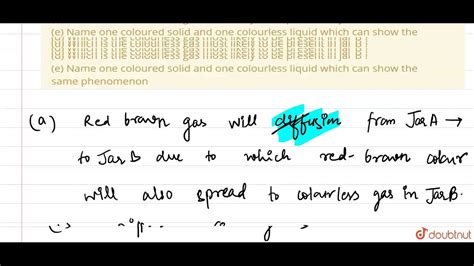 (e) Name one coloured solid and one colourless liquid which can show the
(e) Name one coloured solid and one colourless liquid which can show the
same phenomenon
(a) Red brown gas will diffusion from Jar A →
to Jar B due to which red-brown colour
will also spread to colourless gas in Jar B.
doubtnut